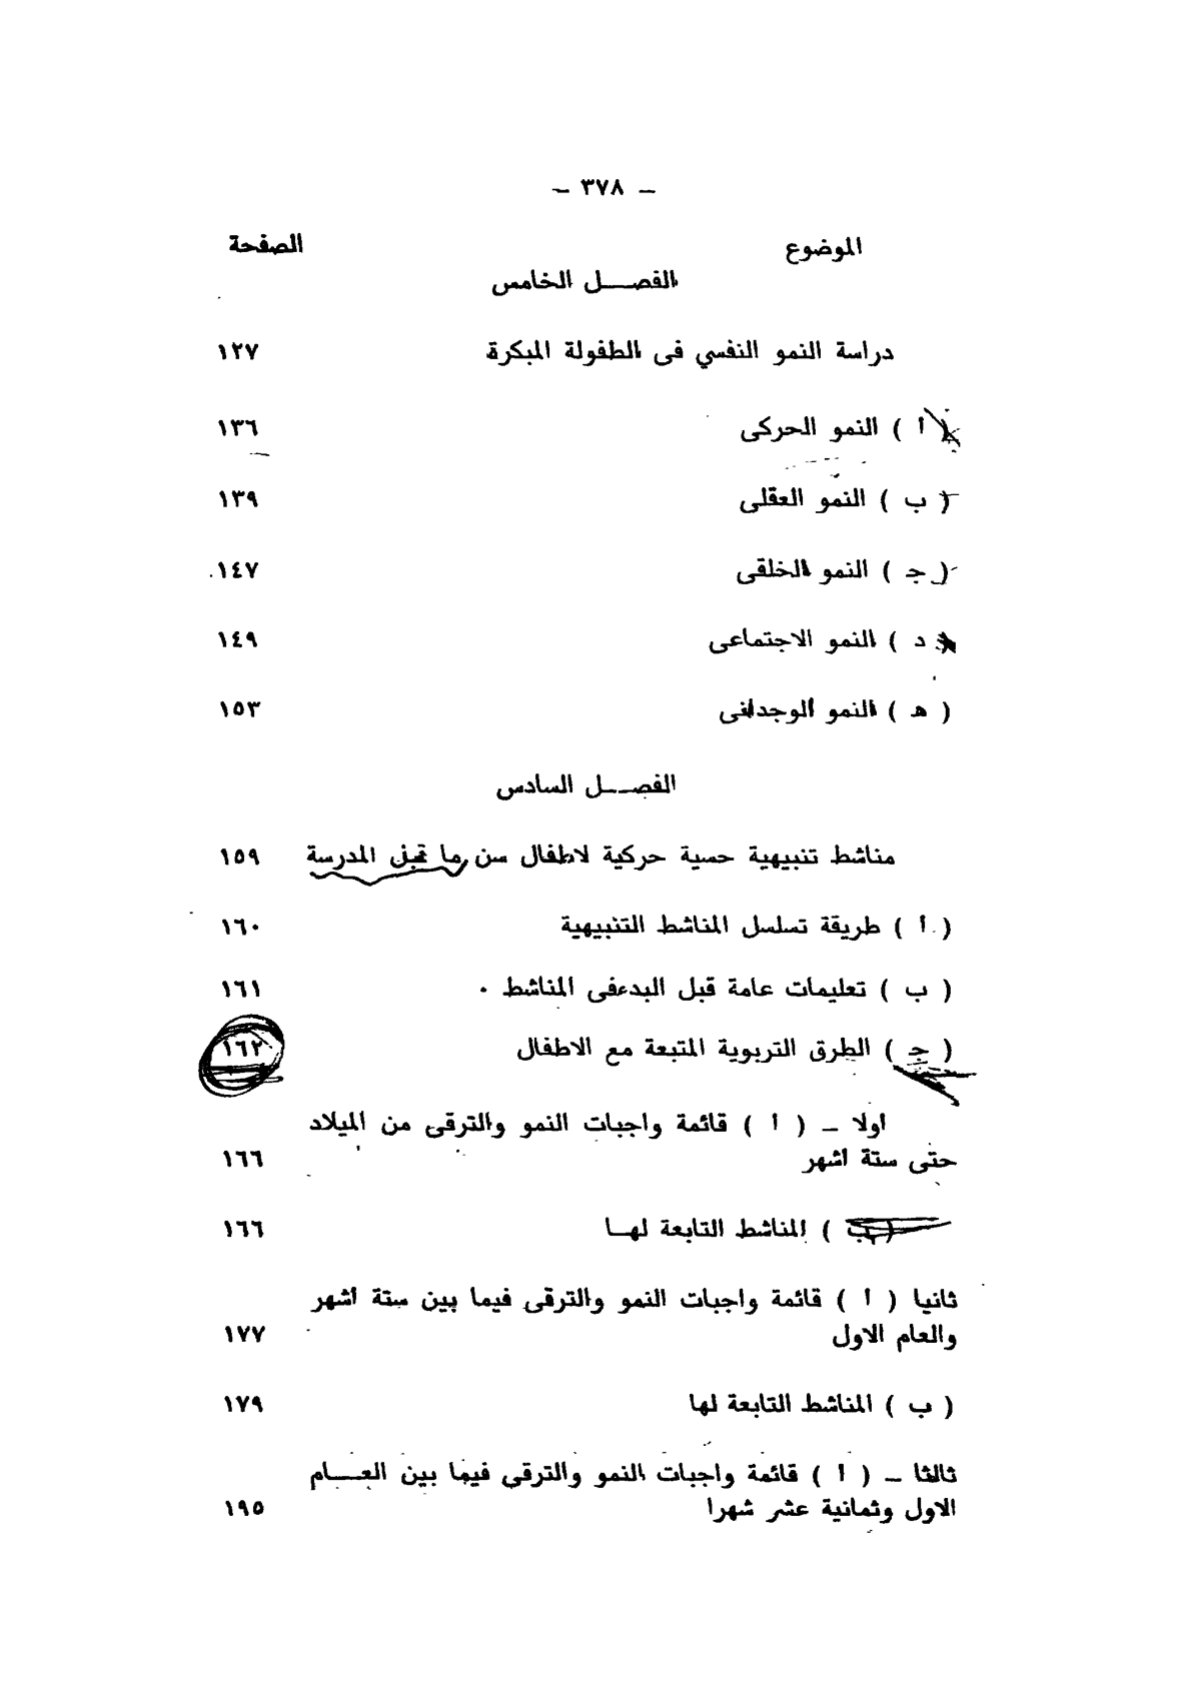 — ٣٧٨ —
الموضوع الصفحة
الفصـــل الخامس
دراسة النمو النفسي فى الطفولة المبكرة ١٢٧
( أ ) النمو الحركى ١٣٦
( ب ) النمو العقلى ١٣٩
( جـ ) النمو الخلقى ١٤٧
( د ) النمو الاجتماعى ١٤٩
( هـ ) النمو الوجدانى ١٥٣
الفصـــل السادس
مناشط تنبيهية حسية حركية لاطفال سن ما قبل المدرسة ١٥٩
( أ ) طريقة تسلسل المناشط التنبيهية ١٦٠
( ب ) تعليمات عامة قبل البدءفى المناشط . ١٦١
( جـ ) الطرق التربوية المتبعة مع الاطفال ١٦٢
اولا — ( أ ) قائمة واجبات النمو والترقى من الميلاد
حتى ستة اشهر ١٦٦
( ب ) المناشط التابعة لهــا ١٦٦
ثانيا ( أ ) قائمة واجبات النمو والترقى فيما بين ستة اشهر
والعام الاول ١٧٧
( ب ) المناشط التابعة لها ١٧٩
ثالثا — ( أ ) قائمة واجبات النمو والترقى فيما بين العــــام
الاول وثمانية عشر شهرا ١٩٥